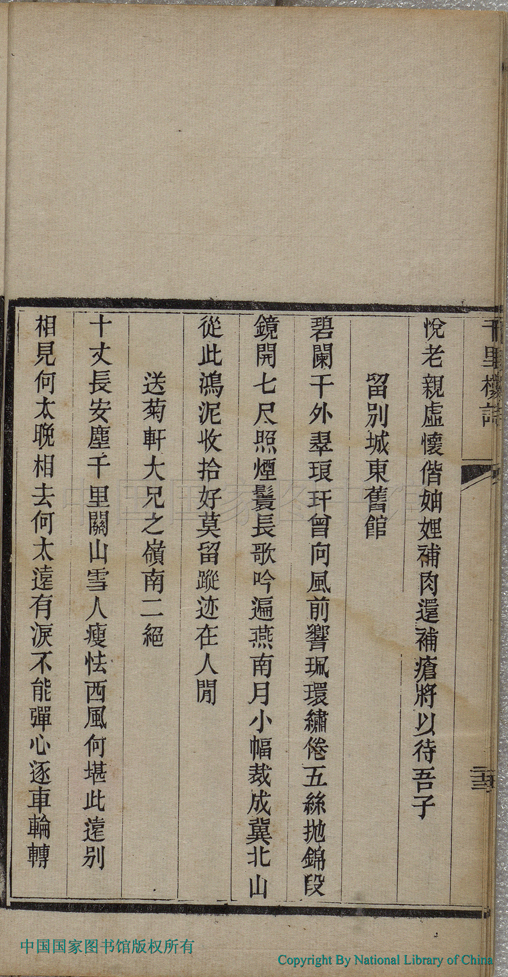 千里樓詩
悅老親虛懷偕妯娌補肉還補瘡將以待吾子
留別城東舊館
碧闌干外翠琅玕曾向風前響珮環繡倦五絲抛錦段
鏡開七尺照煙鬟長歌吟遍燕南月小幅裁成冀北山
從此鴻泥收拾好莫留蹤迹在人閒
送菊軒大兄之嶺南二絕
十丈長安塵千里關山雪人瘦怯西風何堪此遠別
相見何太晚相去何太遠有淚不能彈心逐車輪轉
中国国家图书馆版权所有
Copyright By National Library of China